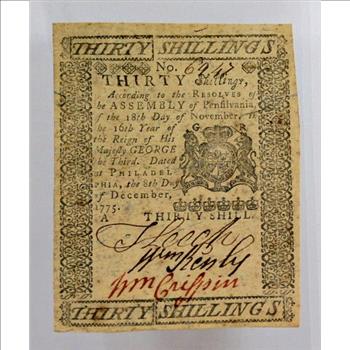 THIRTY SHILLINGS
No.
THIRTY Shillings,
According to the RESOLVES of
he ASSEMBLY of Pennsilvania,
f the 18th Day of November, in
he 16th Year of
the Reign of His
Majesty GEORGE
he Third. Dated
at PHILADEL
PHIA, the 8th Day
of December,
1775.
G R
A THIRTY SHILL.
Wm Crispin
THIRTY SHILLINGS